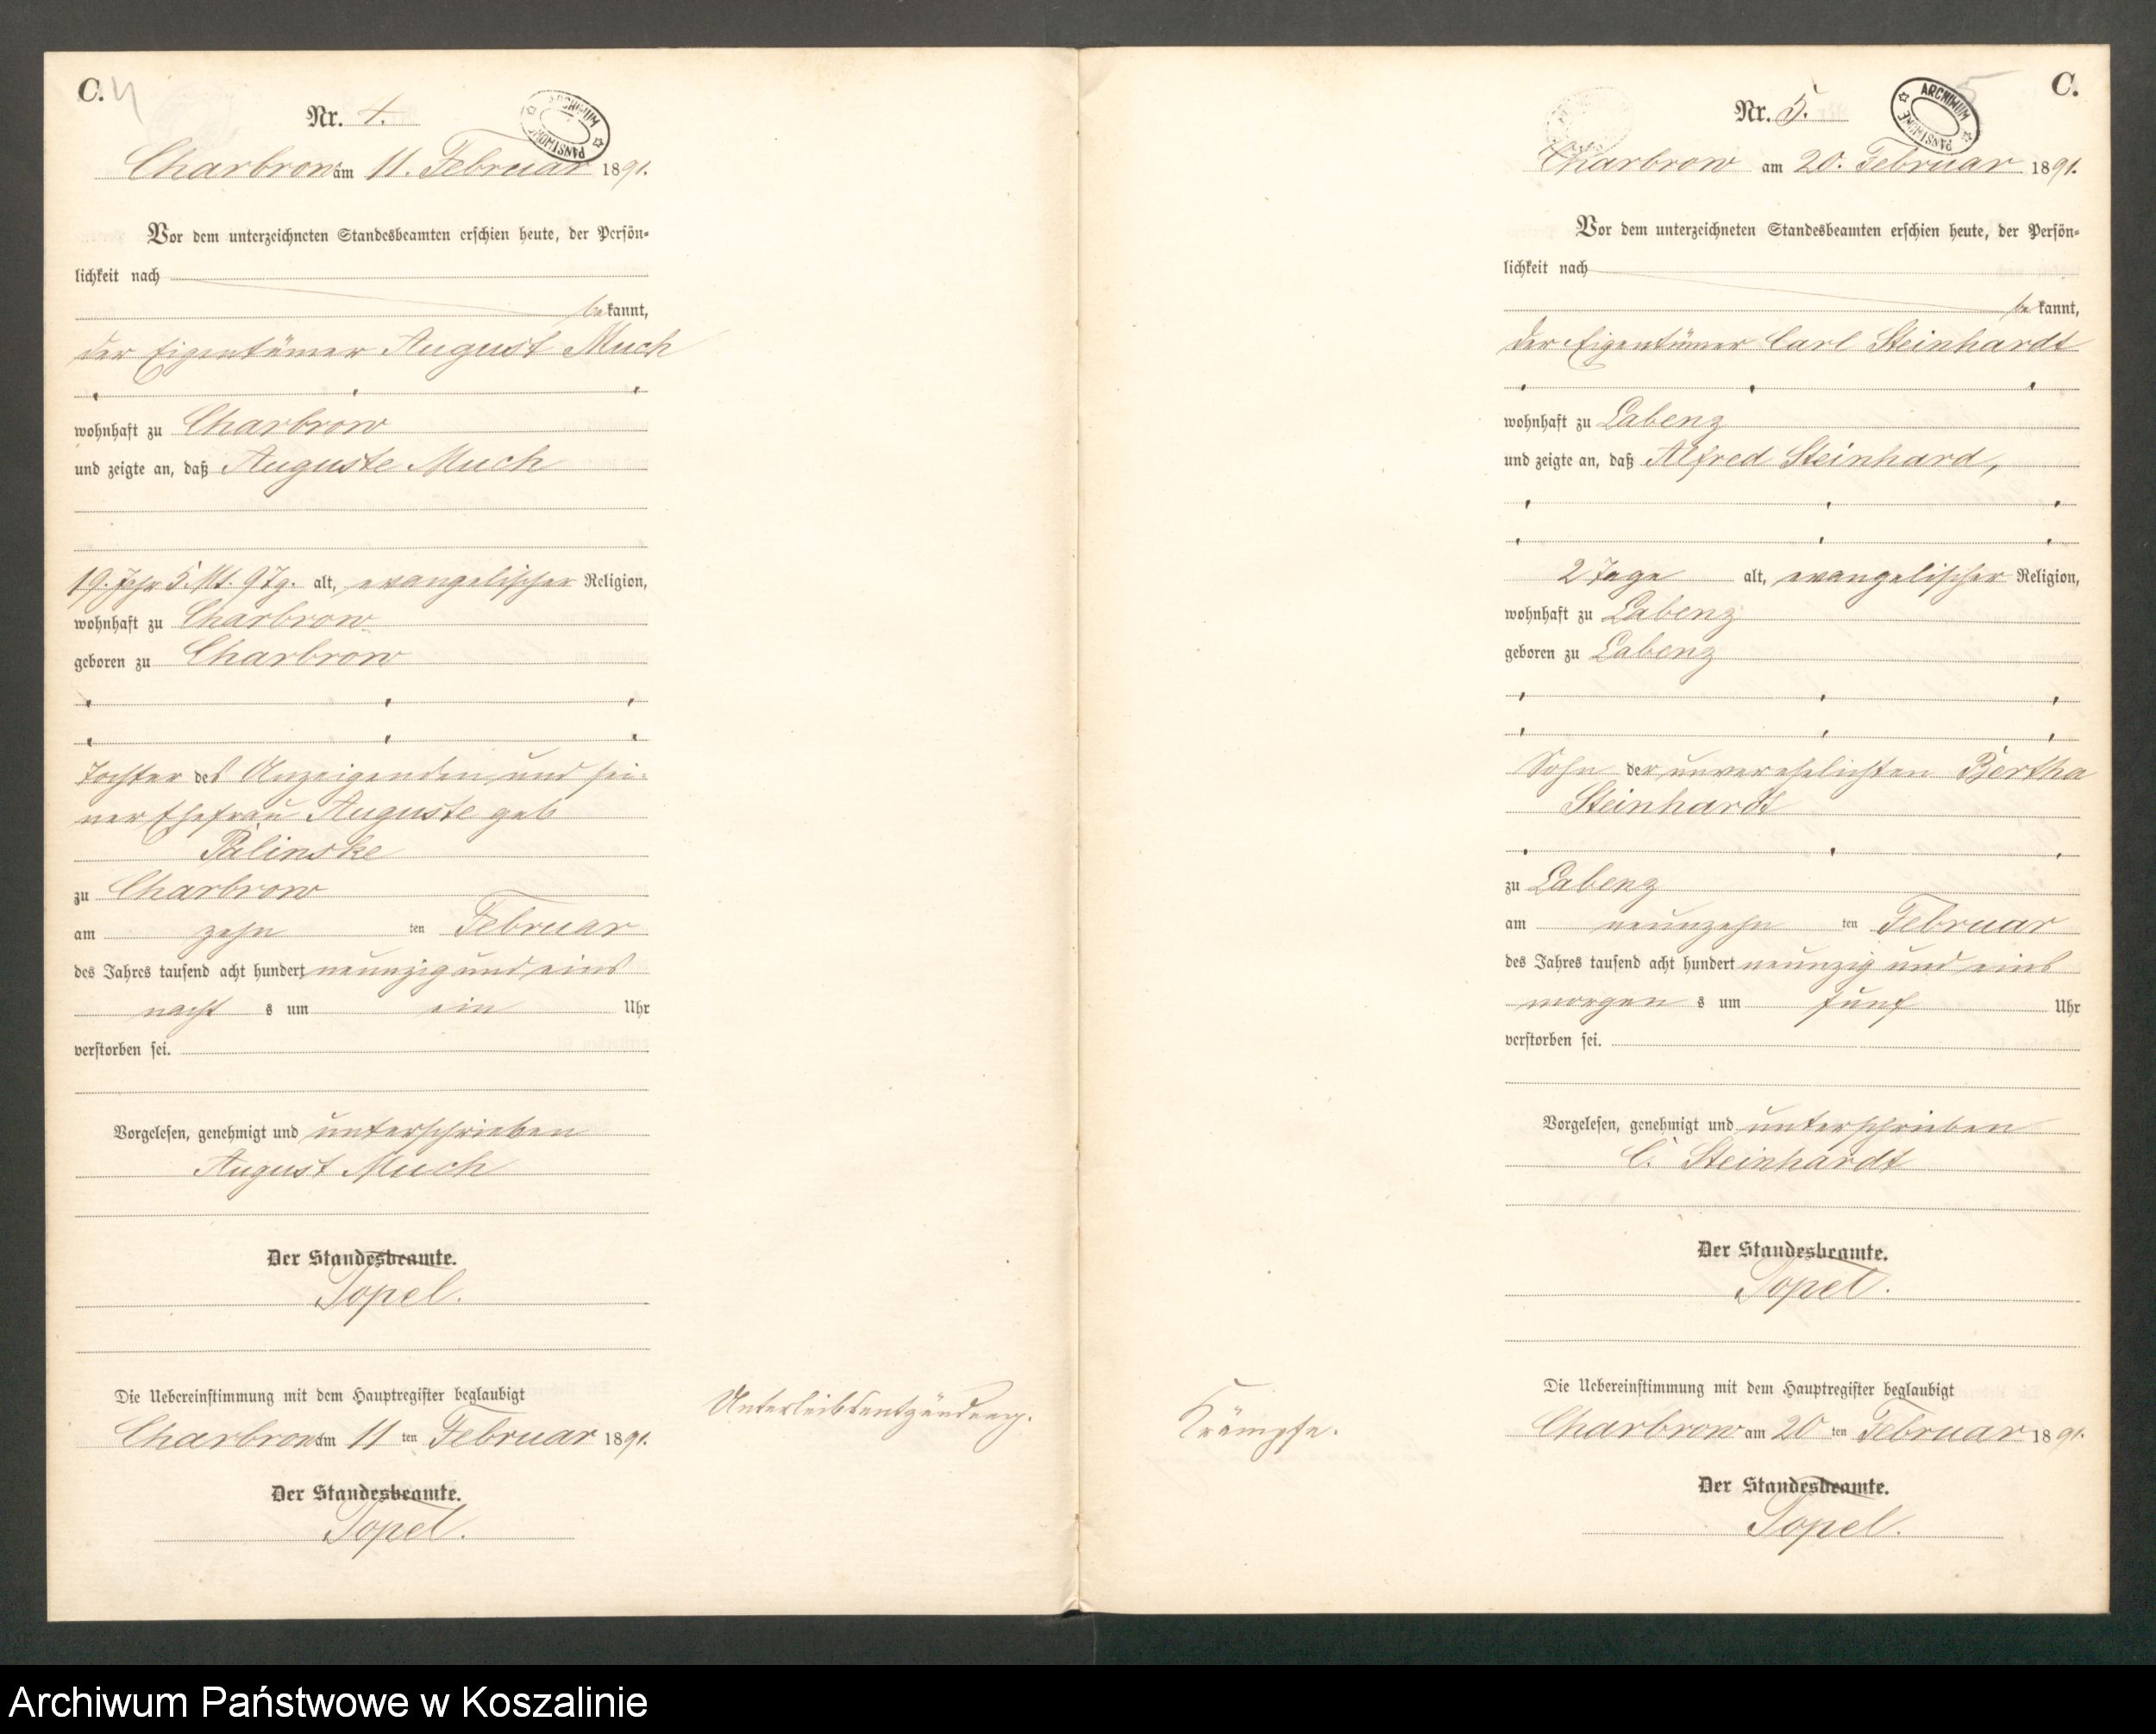 C. 4
Nr. 4.
ARCHIWUM PAŃSTWOWE
Charbrow am 11. Februar 1891.
Vor dem unterzeichneten Standesbeamten erschien heute, der Persön-
lichkeit nach
be kannt,
der Eigentümer August Much
wohnhaft zu Charbrow
und zeigte an, daß Auguste Much
19. Jahr 5 Mt. 9 Tg. alt, evangelischer Religion,
wohnhaft zu Charbrow
geboren zu Charbrow
Tochter des Anzeigenden und sei-
ner Ehefrau Auguste geb
Palinske
zu Charbrow
am zehn ten Februar
des Jahres tausend acht hundert neunzig und eins
nacht s um ein Uhr
verstorben sei.
Vorgelesen, genehmigt und unterschrieben
August Much
Der Standesbeamte.
Topel.
Die Uebereinstimmung mit dem Hauptregister beglaubigt
Charbrow am 11 ten Februar 1891.
Der Standesbeamte.
Topel.
Unterleibsentzündung.
5 C.
Nr. 5.
ARCHIWUM PAŃSTWOWE
Charbrow am 20. Februar 1891.
Vor dem unterzeichneten Standesbeamten erschien heute, der Persön-
lichkeit nach
be kannt,
der Eigentümer Carl Steinhardt
wohnhaft zu Labenz
und zeigte an, daß Alfred Steinhard,
2 Tage alt, evangelischer Religion,
wohnhaft zu Labenz
geboren zu Labenz
Sohn der unverehelichten Bertha
Steinhardt
zu Labenz
am neunzehn ten Februar
des Jahres tausend acht hundert neunzig und eins
morgen s um fünf Uhr
verstorben sei.
Vorgelesen, genehmigt und unterschrieben
C. Steinhardt
Der Standesbeamte.
Topel.
Krämpfe.
Die Uebereinstimmung mit dem Hauptregister beglaubigt
Charbrow am 20 ten Februar 1891.
Der Standesbeamte.
Topel.
Archiwum Państwowe w Koszalinie